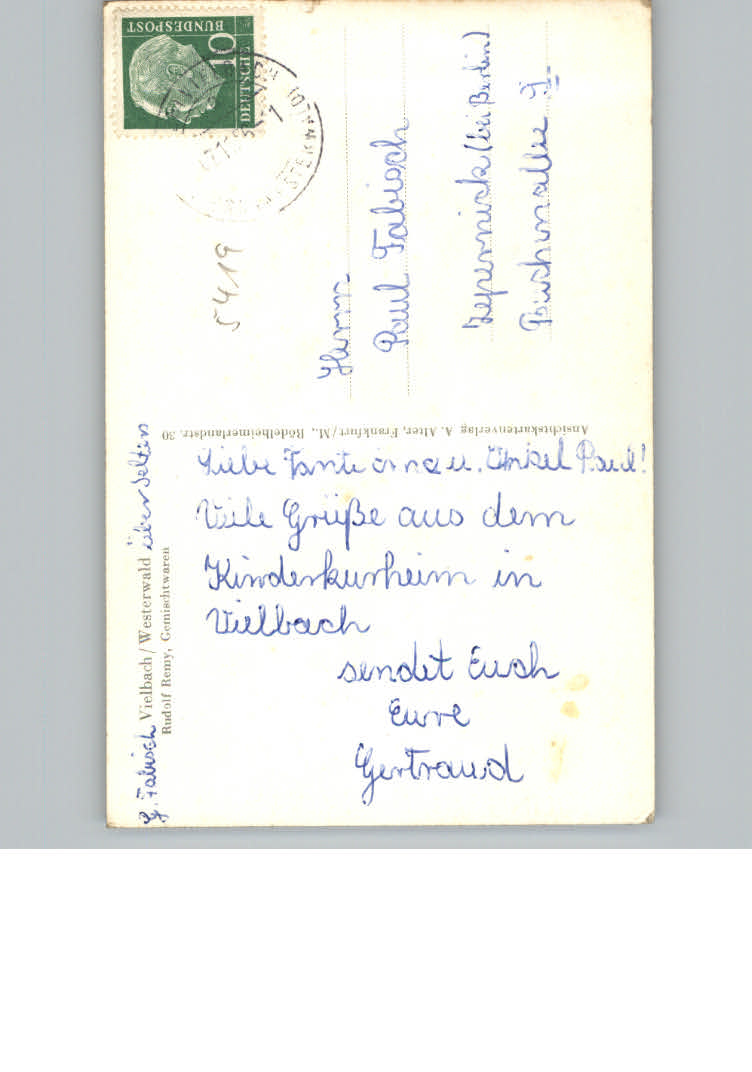 DEUTSCHE
BUNDESPOST
10
5419
Herrn
Paul Fabisch
Zepernick (bei Berlin)
Buchenallee 9
Ansichtskartenverlag A. Alter, Frankfurt/M., Rödelheimerlandstr. 30
G. Fabisch Vielbach/Westerwald über Selters
Rudolf Remy, Gemischtwaren
Liebe Tante u. Onkel Paul!
Viele Grüße aus dem
Kinderkurheim in
Vielbach
sendet Euch
Eure
Gertraud